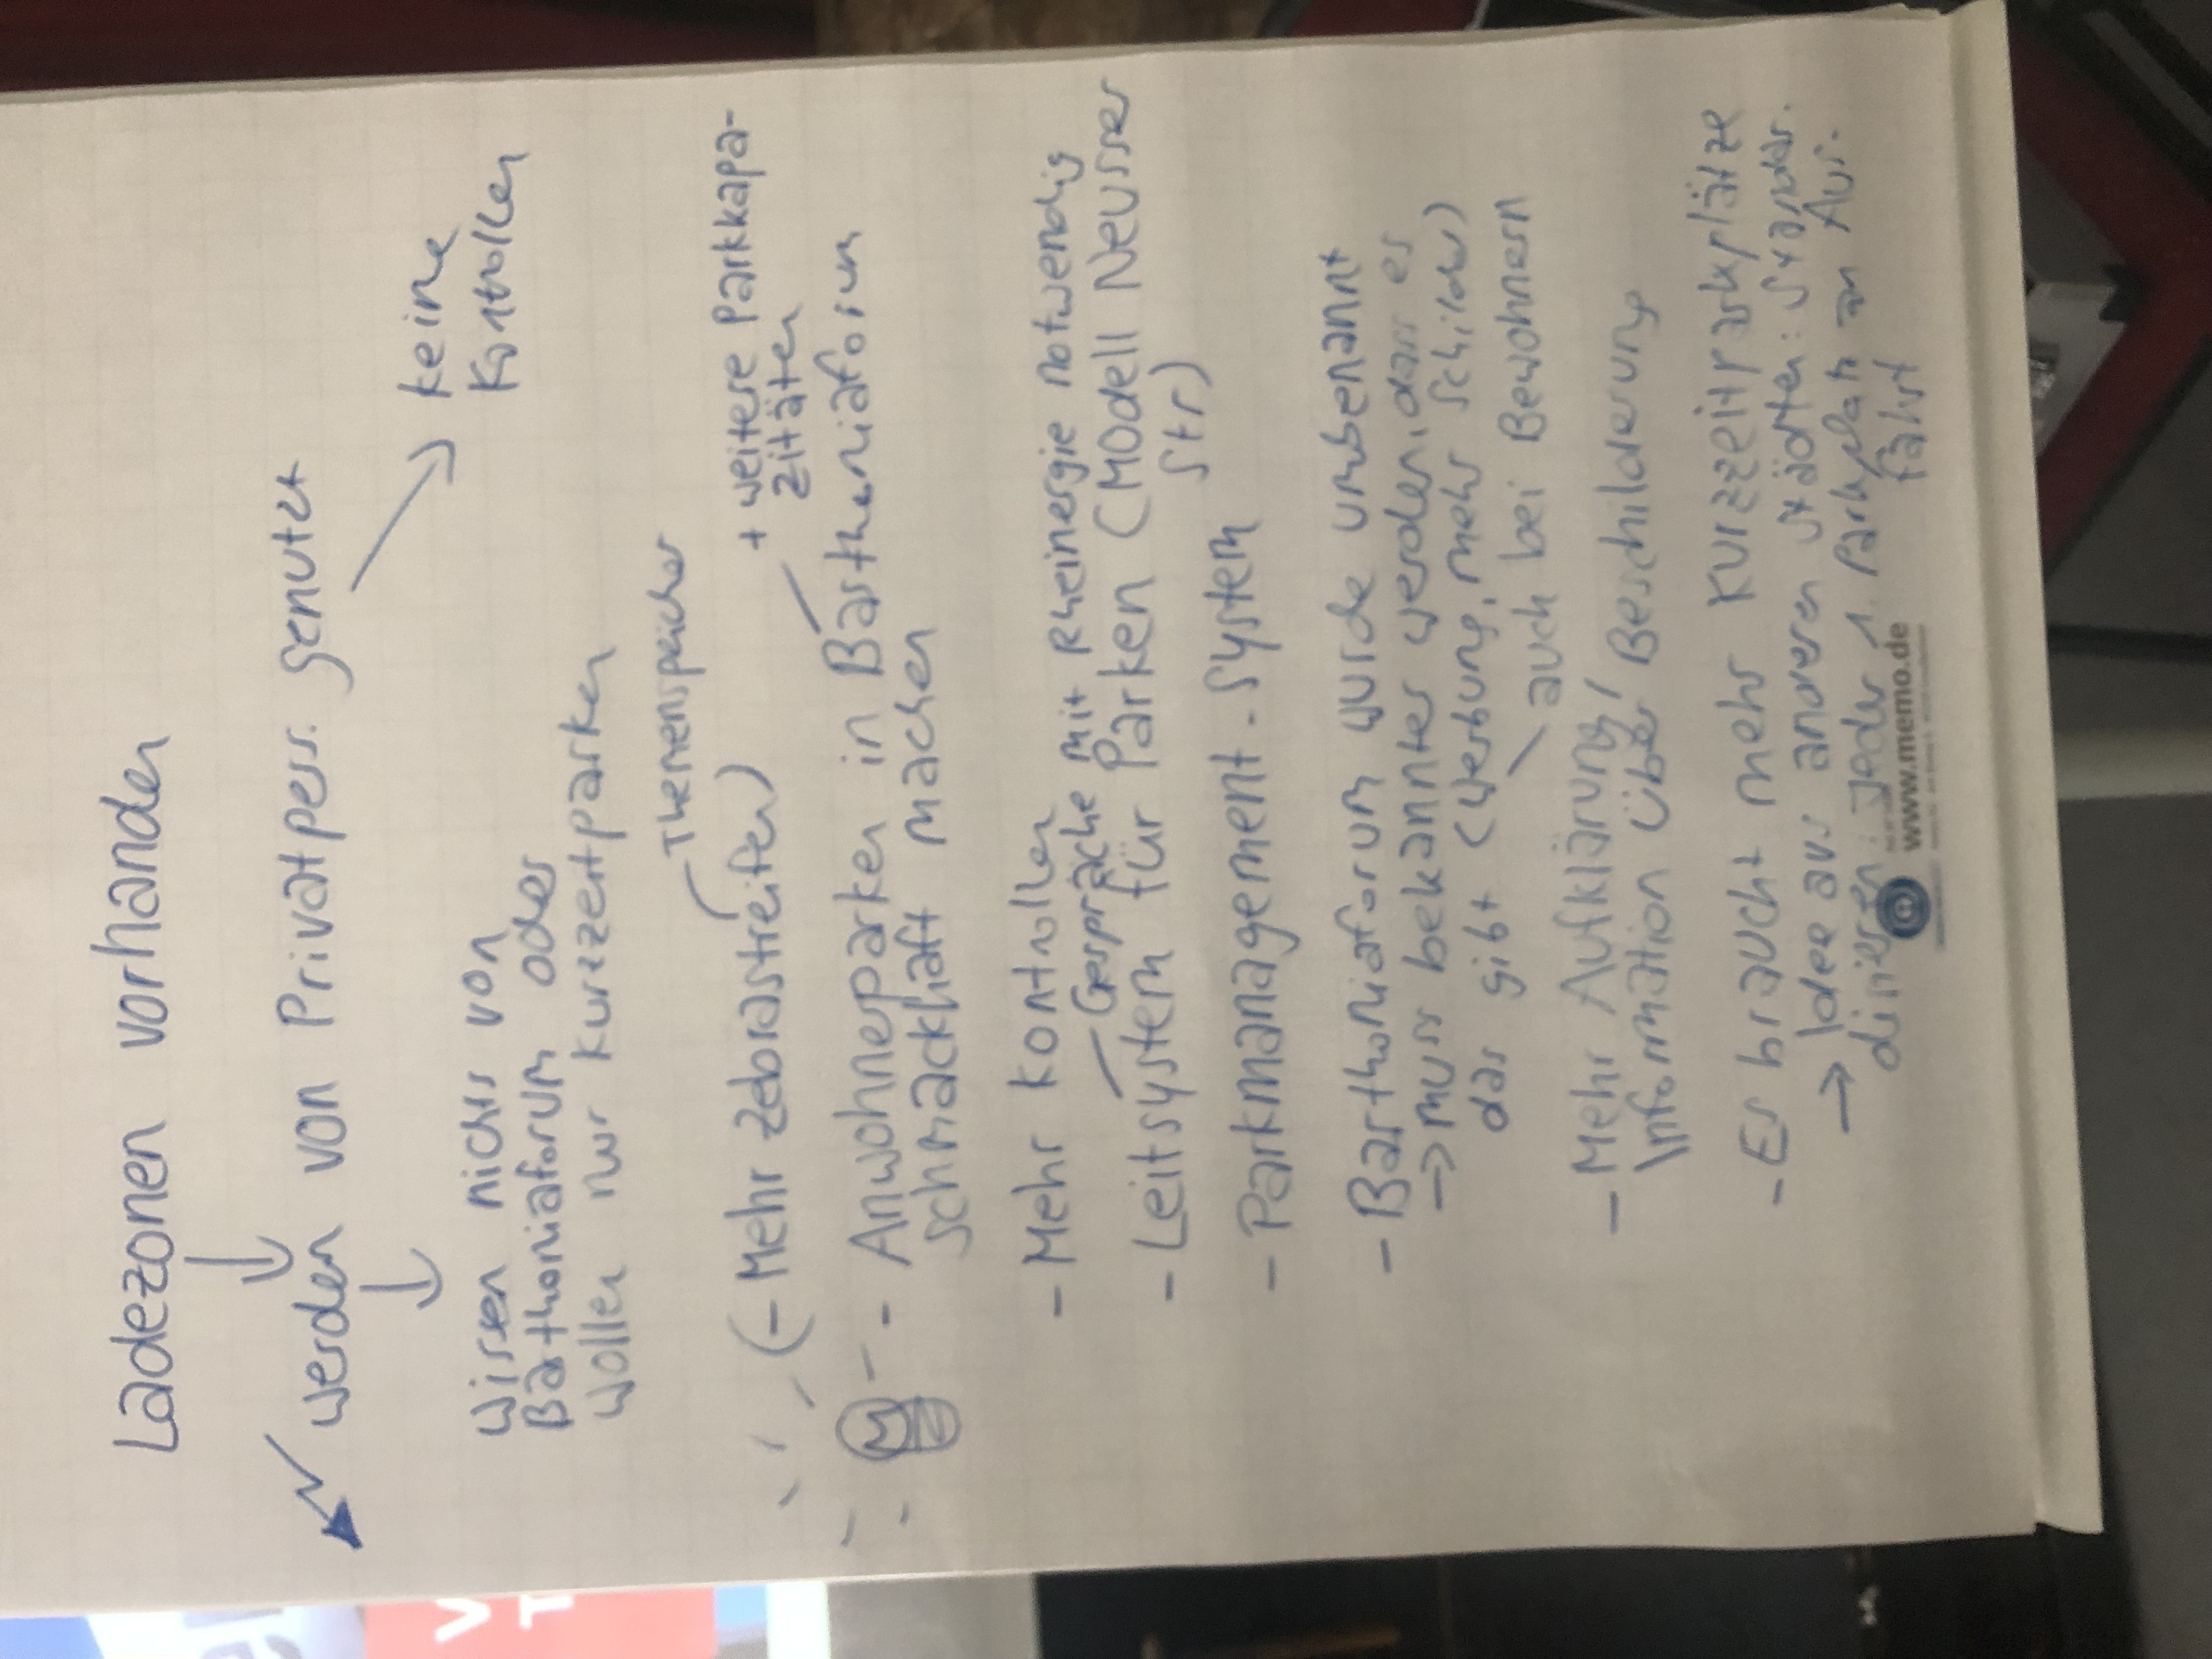 Ladezonen vorhanden
werden von Privatpers. genutzt
keine
Kontrollen
wissen nichts von
Barthoniaforum oder
wollen nur Kurzzeitparken
Themenspeicher
(- Mehr Zebrastreifen)
+ weitere Parkkapa-
zitäten
- Anwohnerparken in Barthoniaforum
schmackhaft machen
- Mehr Kontrollen
Gespräche mit Rheinergie notwendig
- Leitsystem für Parken (Modell Neusser
Str)
- Parkmanagement-System
- Barthoniaforum wurde umbenannt
→ muss bekannter werden, dass es
das gibt (Werbung, mehr Schilder)
auch bei Bewohnern
- Mehr Aufklärung/
Information über Beschilderung
- Es braucht mehr Kurzzeitparkplätze
→ Idee aus anderen Städten: Standar-
disieren: Jeder 1. Parkplatz an Aus-
fahrt
www.memo.de